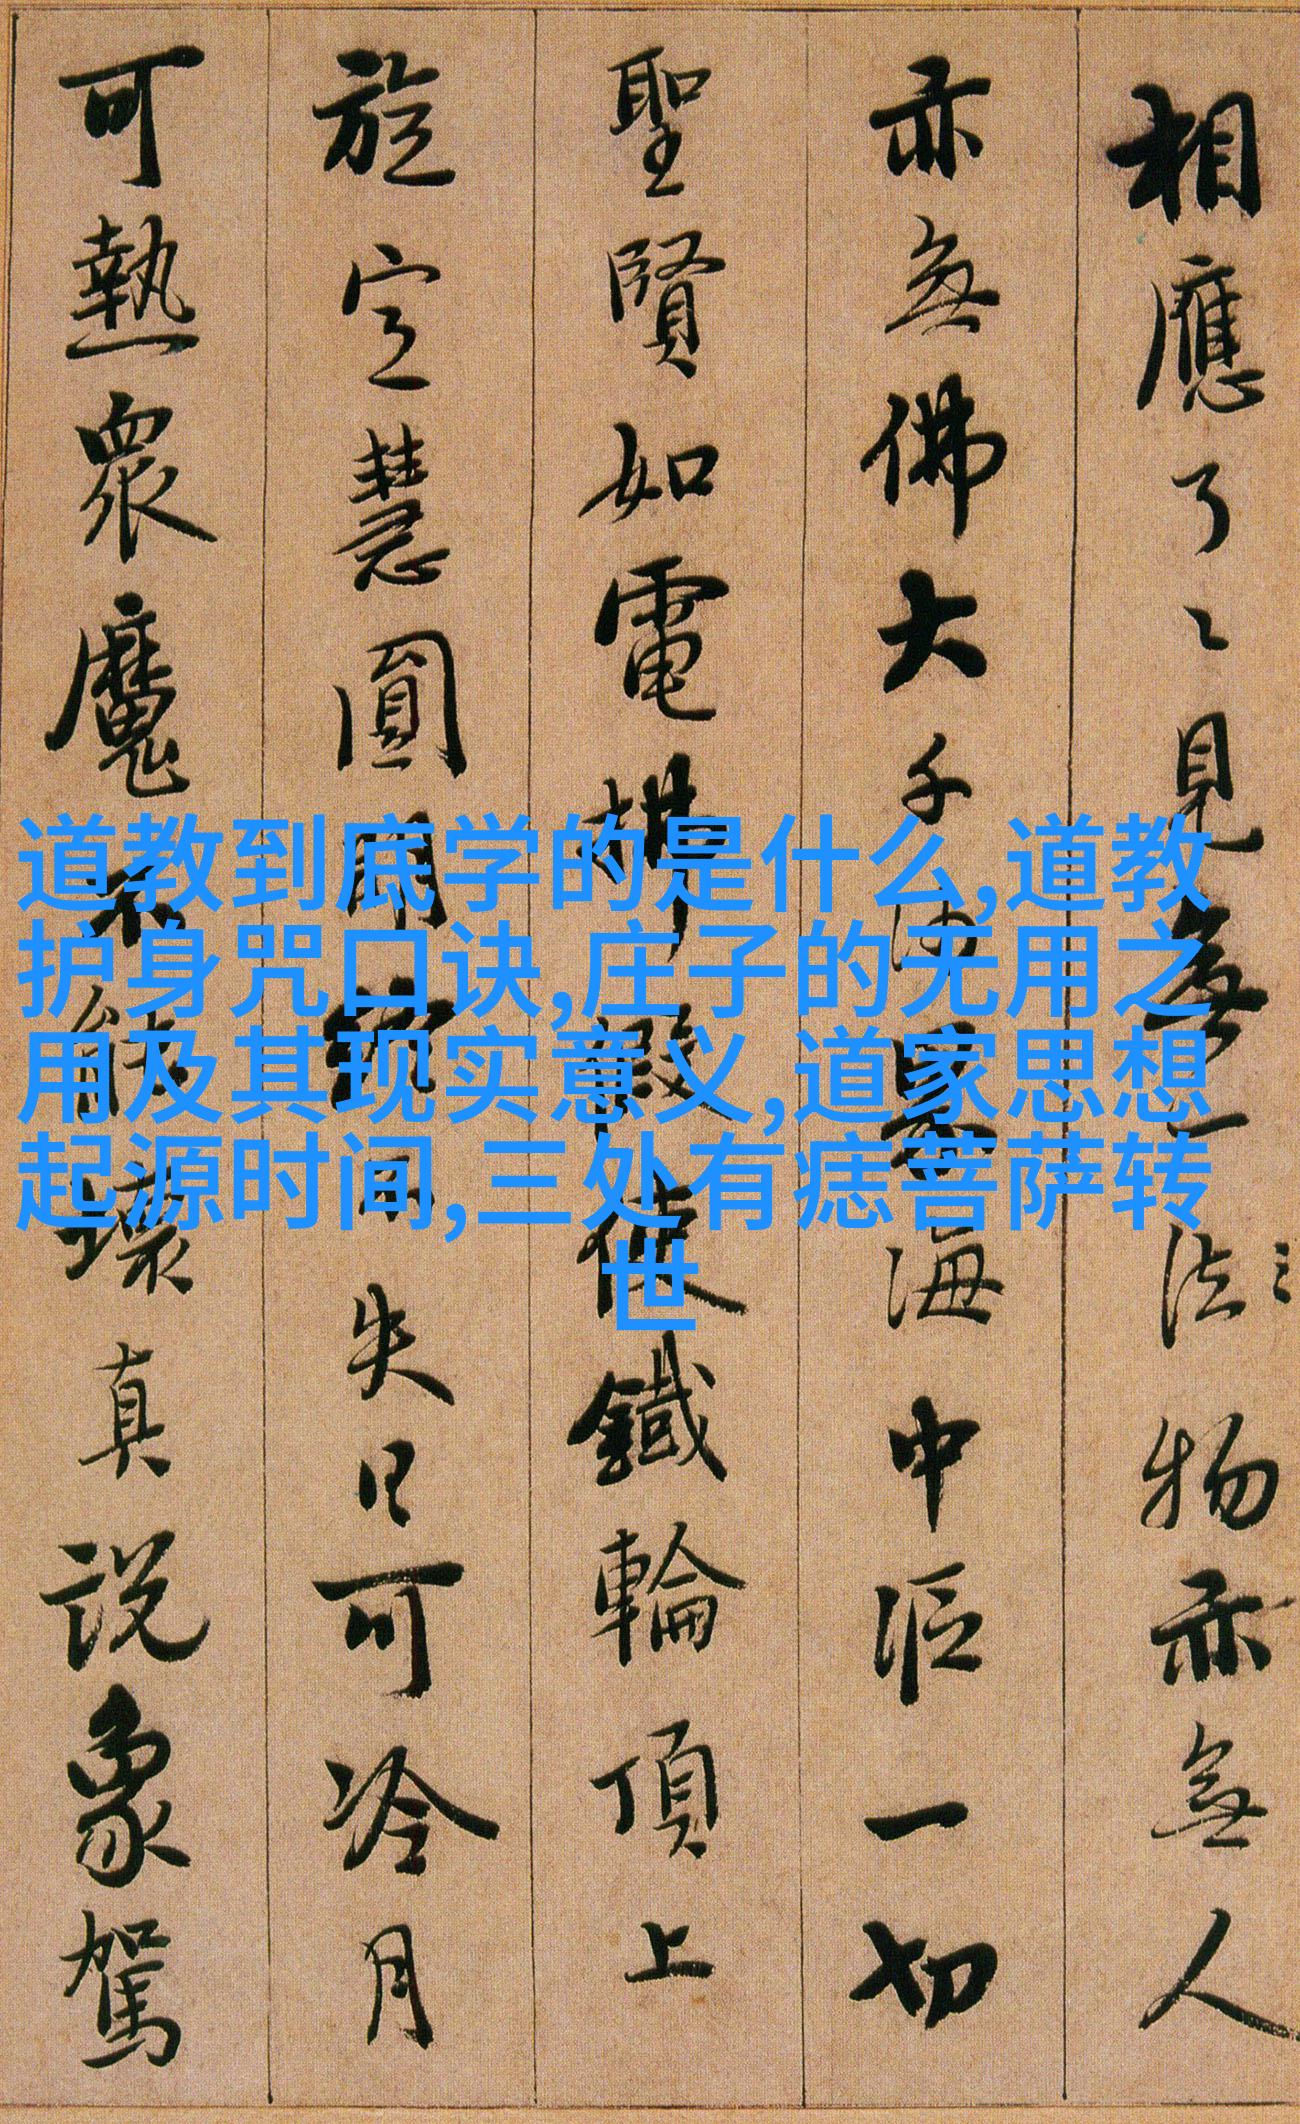 相應了〻見無一法物亦無人
亦無佛大千沙界海中漚一切
聖賢如電拂假使鐵輪頂上
旋定慧圓明終不失日可冷月
可熱眾魔不能壞真說象駕
道教到底学的是什么,道教
护身咒口诀,庄子的无用之
用及其现实意义,道家思想
起源时间,三处有痣菩萨转
世